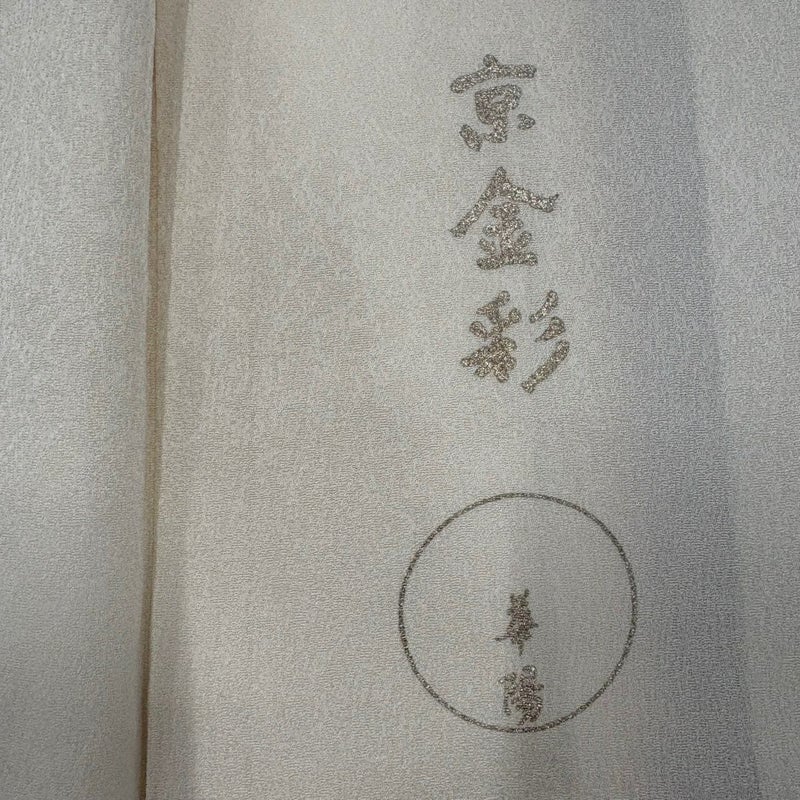 京金彩
華陽